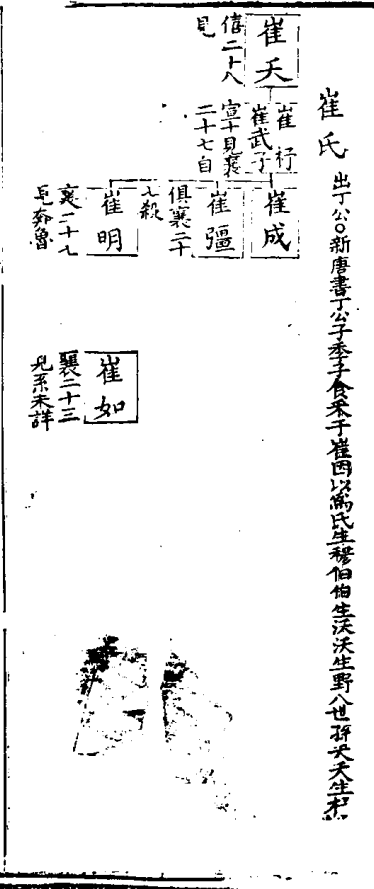 崔氏 出丁公○新唐書丁公子季子食采于崔因以爲氏生穆伯伯生沃沃生野八世孫夭夭生杼
崔夭
僖二十八
見
崔杼
崔武子
宣十見襄
二十七自
崔成
崔彊
俱襄二十
七殺
崔明
襄二十七
見奔魯
崔如
襄二十三
見系未詳